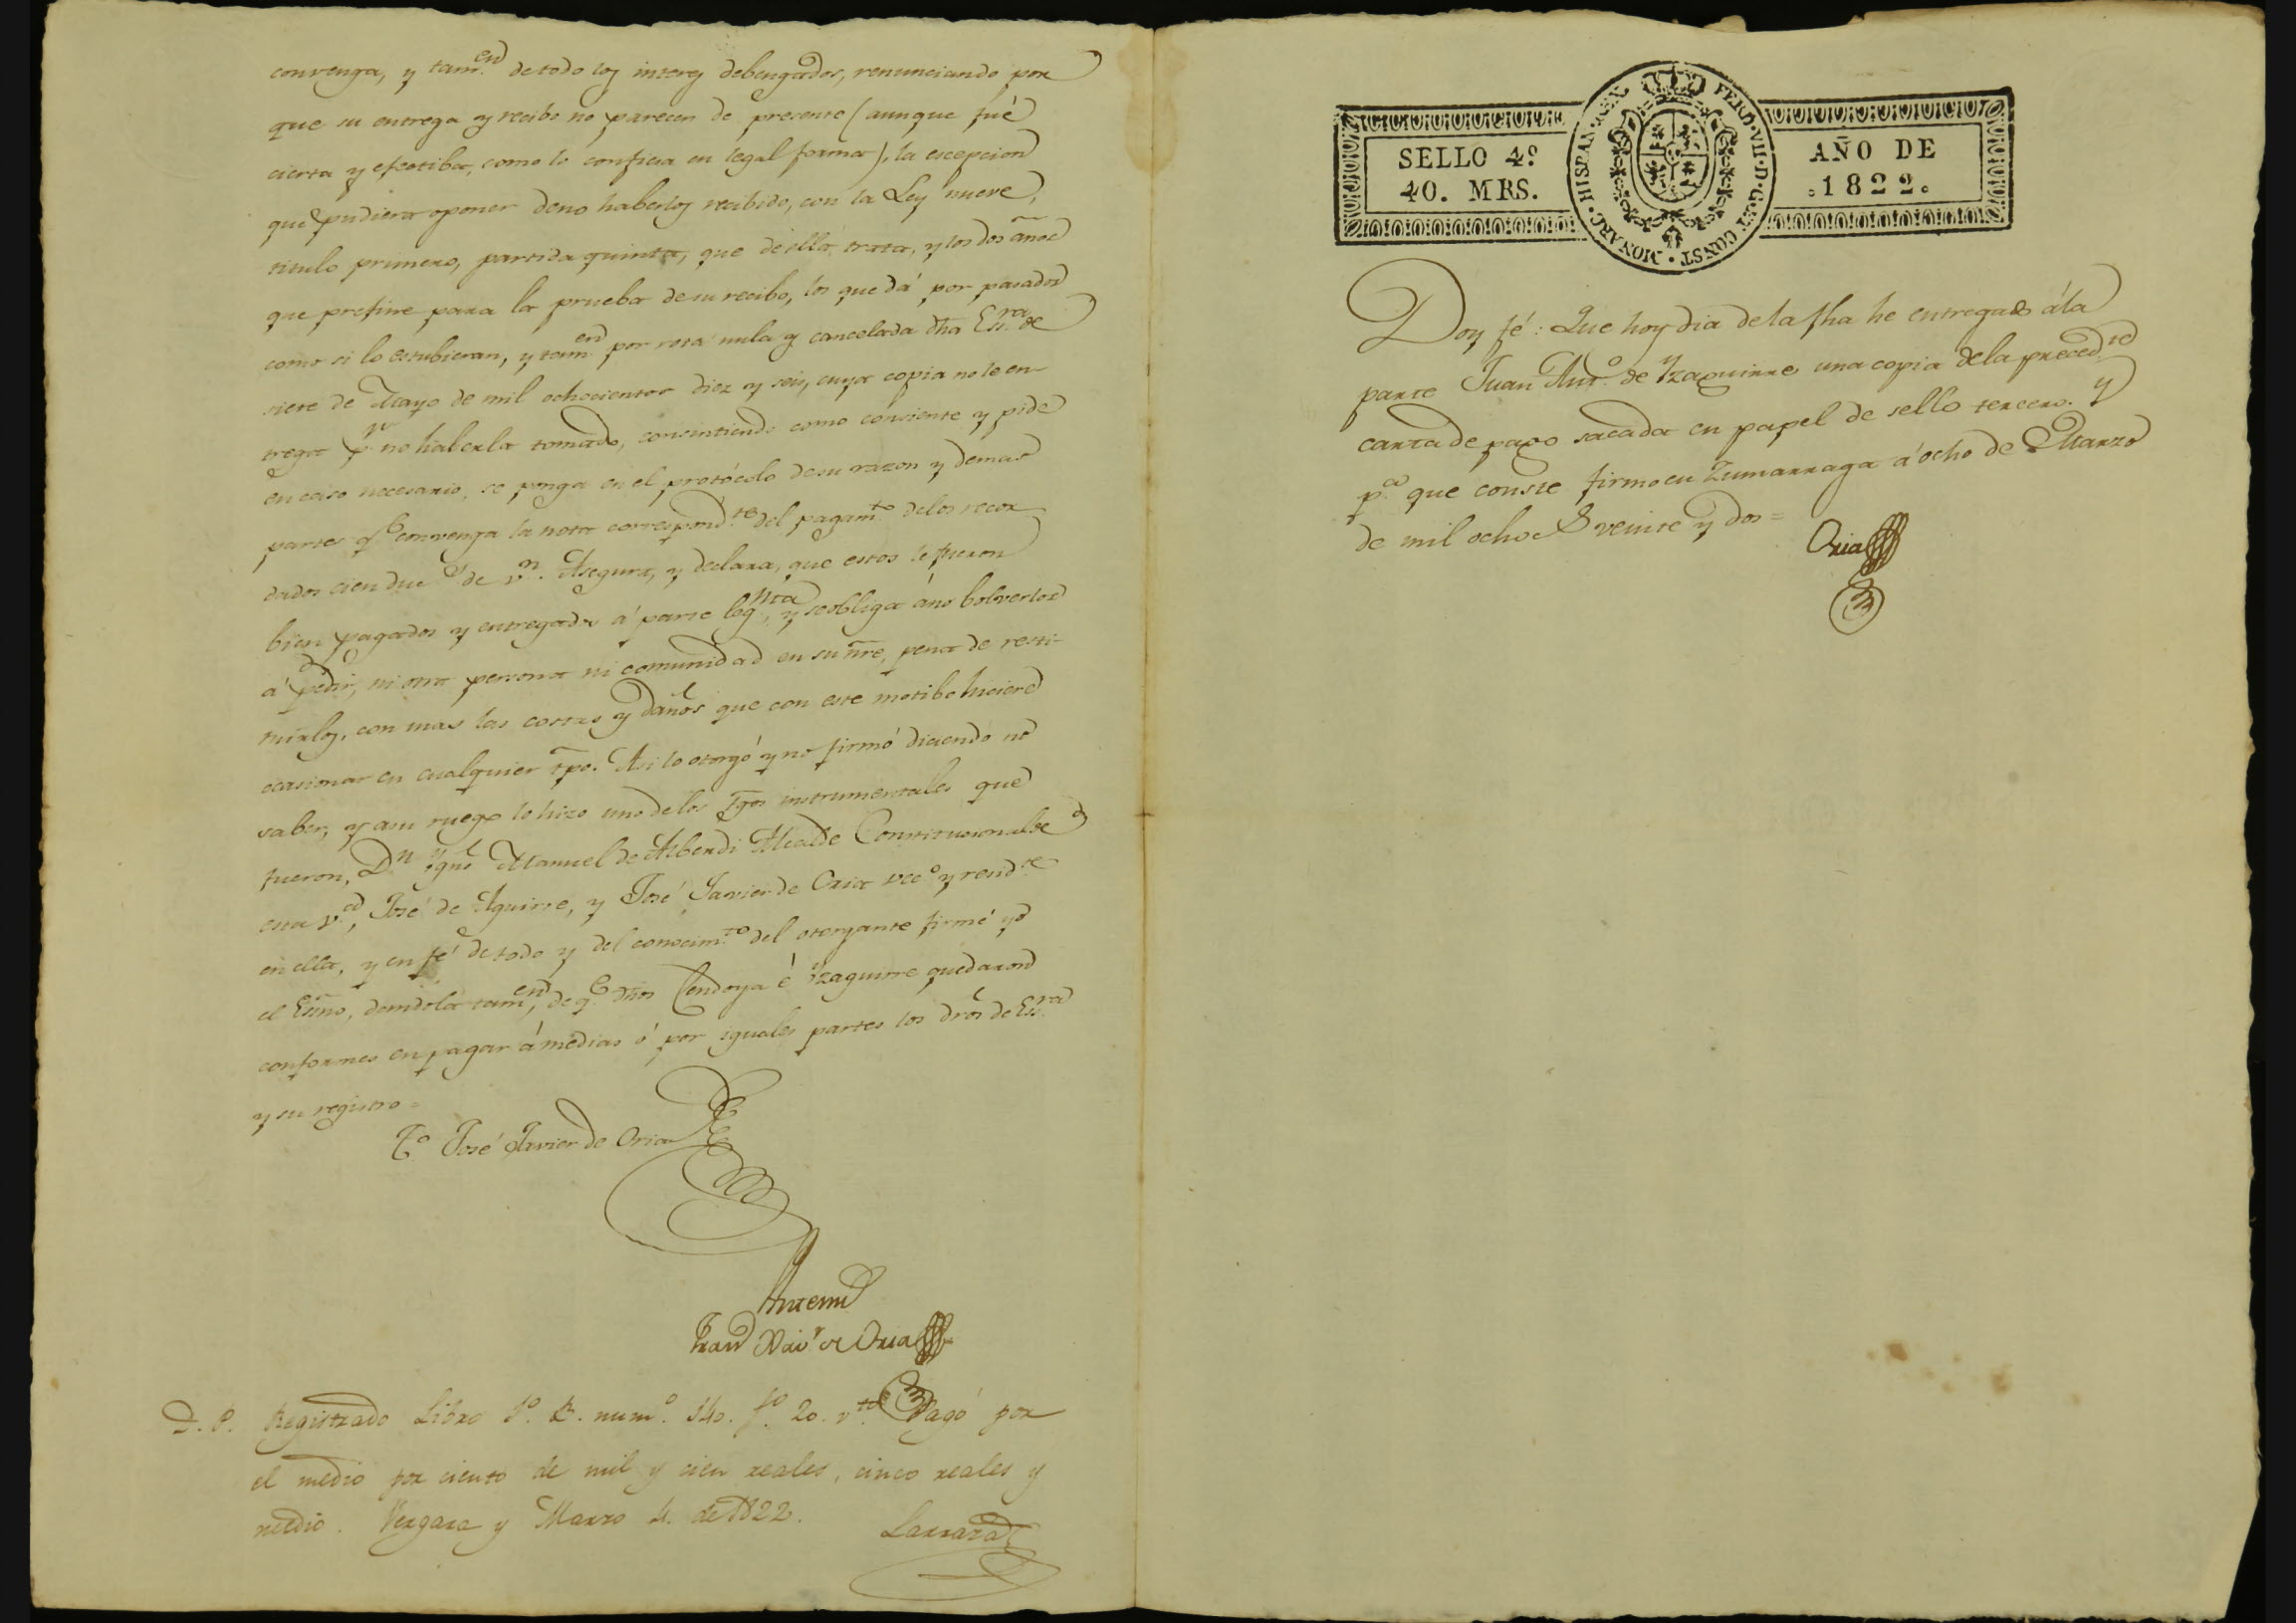 convenga, y tam.en de todo los interes debengados, renunciando por
que su entrega y recibo no parecen de presente (aunque fué
cierta y efectiba, como lo confiesa en legal forma), la escepcion
que pudiera oponer de no haberlos recibido, con la Ley nueve,
titulo primero, partida quinta, que de ella trata, y los dos años
que prefine para la prueba de su recibo, los que dá por pasados
como si lo estubieran, y tam.en por rota nula y cancelada dha Es.ra de
siete de Mayo de mil ochocientos diez y seis, cuya copia no le en-
trega p.r no haberla tomado, consintiendo como consiente y pide
en caso necesario, se ponga en el protócolo de su razon y demas
partes q.e convenga la nota correspond.te del pagam.to de los recor
dados cien duc.s de v.n. Asegura, y declara, que estos le fueron
bien pagados y entregados á parte leg.ma, y se obliga á no bolverlos
á pedir, ni otra persona ni comunidad en su nre, pena de resti-
tuirlos, con mas las costas y daños que con este motibo hiciere
ocasionar en cualquier tpo. Asi lo otorgó y no firmó diciendo no
saber, y a su ruego lo hizo uno de los tgos instrumentales que
fueron, D.n Ygn.o Manuel de Alberdi Alcalde Constitucional de
esta v.a, José de Aguirre, y José Javier de Oria vec.s y resid.te
en ella, y en fé de todo y del conocim.to del otorgante firmé yo
el Esno, dandola tam.en, de q.e dhos Cendoya é Yzaguirre quedaron
conformes en pagar á medias ó por iguales partes los dros de Es.ra
y su registro =
T.o José Javier de Oria
Antemi
Fran.co Xav.r de Oria
D. P. Registrado Libro 1.o R. num.o 140. f.o 20. v.to Pagó por
el medio por ciento de mil y cien reales, cinco reales y
medio. Vergara y Marzo 4. de 1822.
Larraza
SELLO 4º
40. MRS.
HISPAN. REX. FERD. VII. D. G. ET CONST. MONARC.
AÑO DE
1822.
Doy fé: Que hoy dia de la fha he entregado á la
parte Juan Ant.o de Yzaguirre una copia de la preced.te
carta de pago sacada en papel de sello tercero. y
p.a que conste firmo en Zumarraga á ocho de Marzo
de mil ochoc.s veinte y dos =
Oria